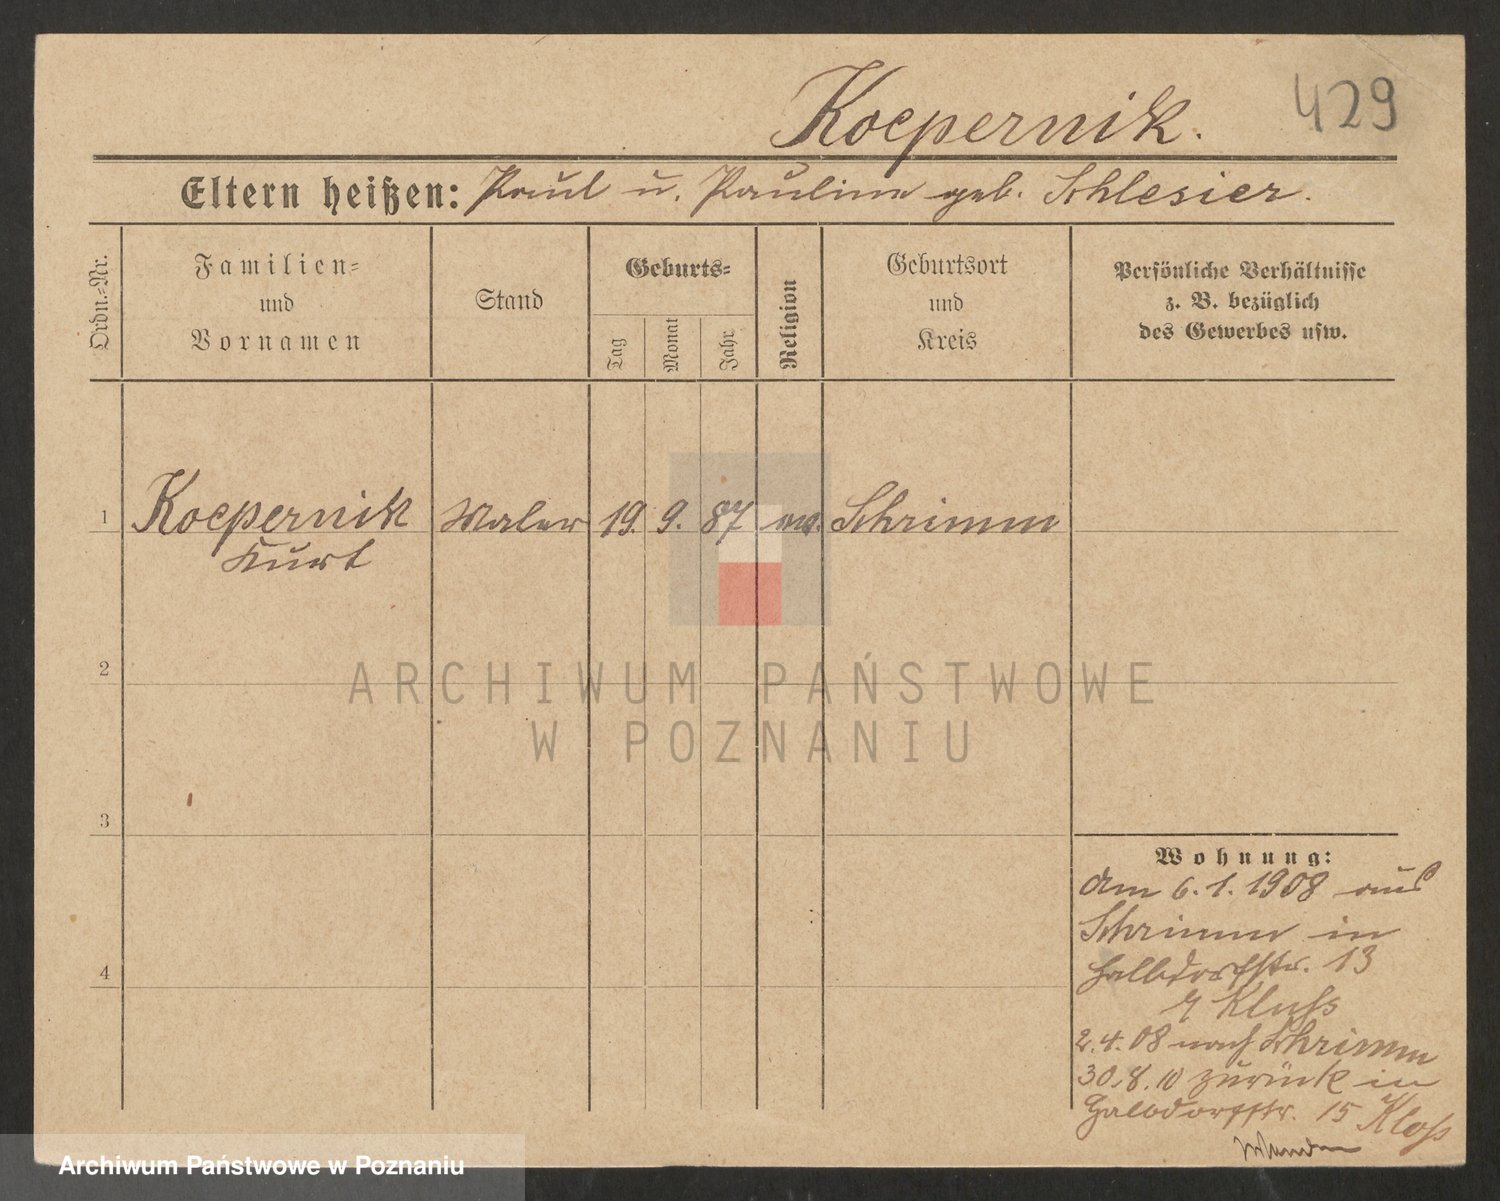 Koepernik.
429
Eltern heißen: Paul u. Pauline geb. Schlesier.
Ordn.-Nr.
Familien=
und
Vornamen
Stand
Geburts=
Tag
Monat
Jahr
Religion
Geburtsort
und
Kreis
Persönliche Verhältnisse
z. B. bezüglich
des Gewerbes usw.
1 Koepernik Maler 19. 9. 87 Schrimm
Kurt
2
3
4
Wohnung:
Am 6.1.1908 aus
Schrimm in
Halbdorfstr. 13
Kluss
2.4.08 nach Schrimm
30.8.10 zurück in
Halbdorfstr. 15 Kloss
ARCHIWUM PAŃSTWOWE
W POZNANIU
Archiwum Państwowe w Poznaniu